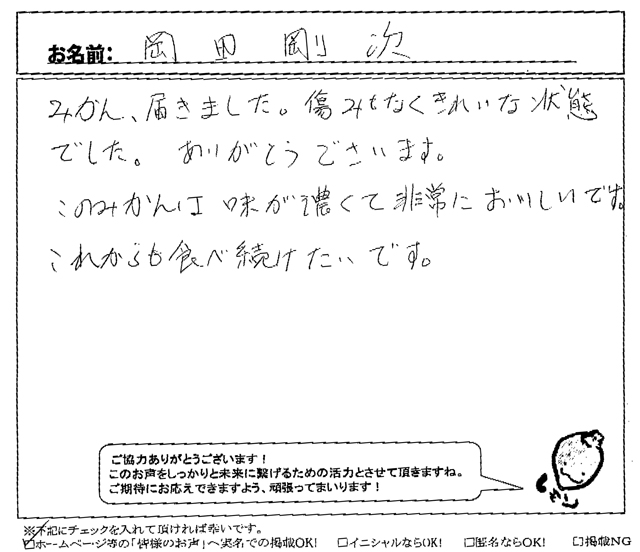 お名前: 岡田剛次
みかん、届きました。傷みもなくきれいな状態
でした。ありがとうございます。
このみかんは味が濃くて非常においしいです。
これからも食べ続けたいです。
ご協力ありがとうございます！
このお声をしっかりと未来に繋げるための活力とさせて頂きますね。
ご期待にお応えできますよう、頑張ってまいります！
※下記にチェックを入れて頂ければ幸いです。
☑ホームページ等の「皆様のお声」へ実名での掲載OK! □イニシャルならOK! □匿名ならOK! □掲載NG